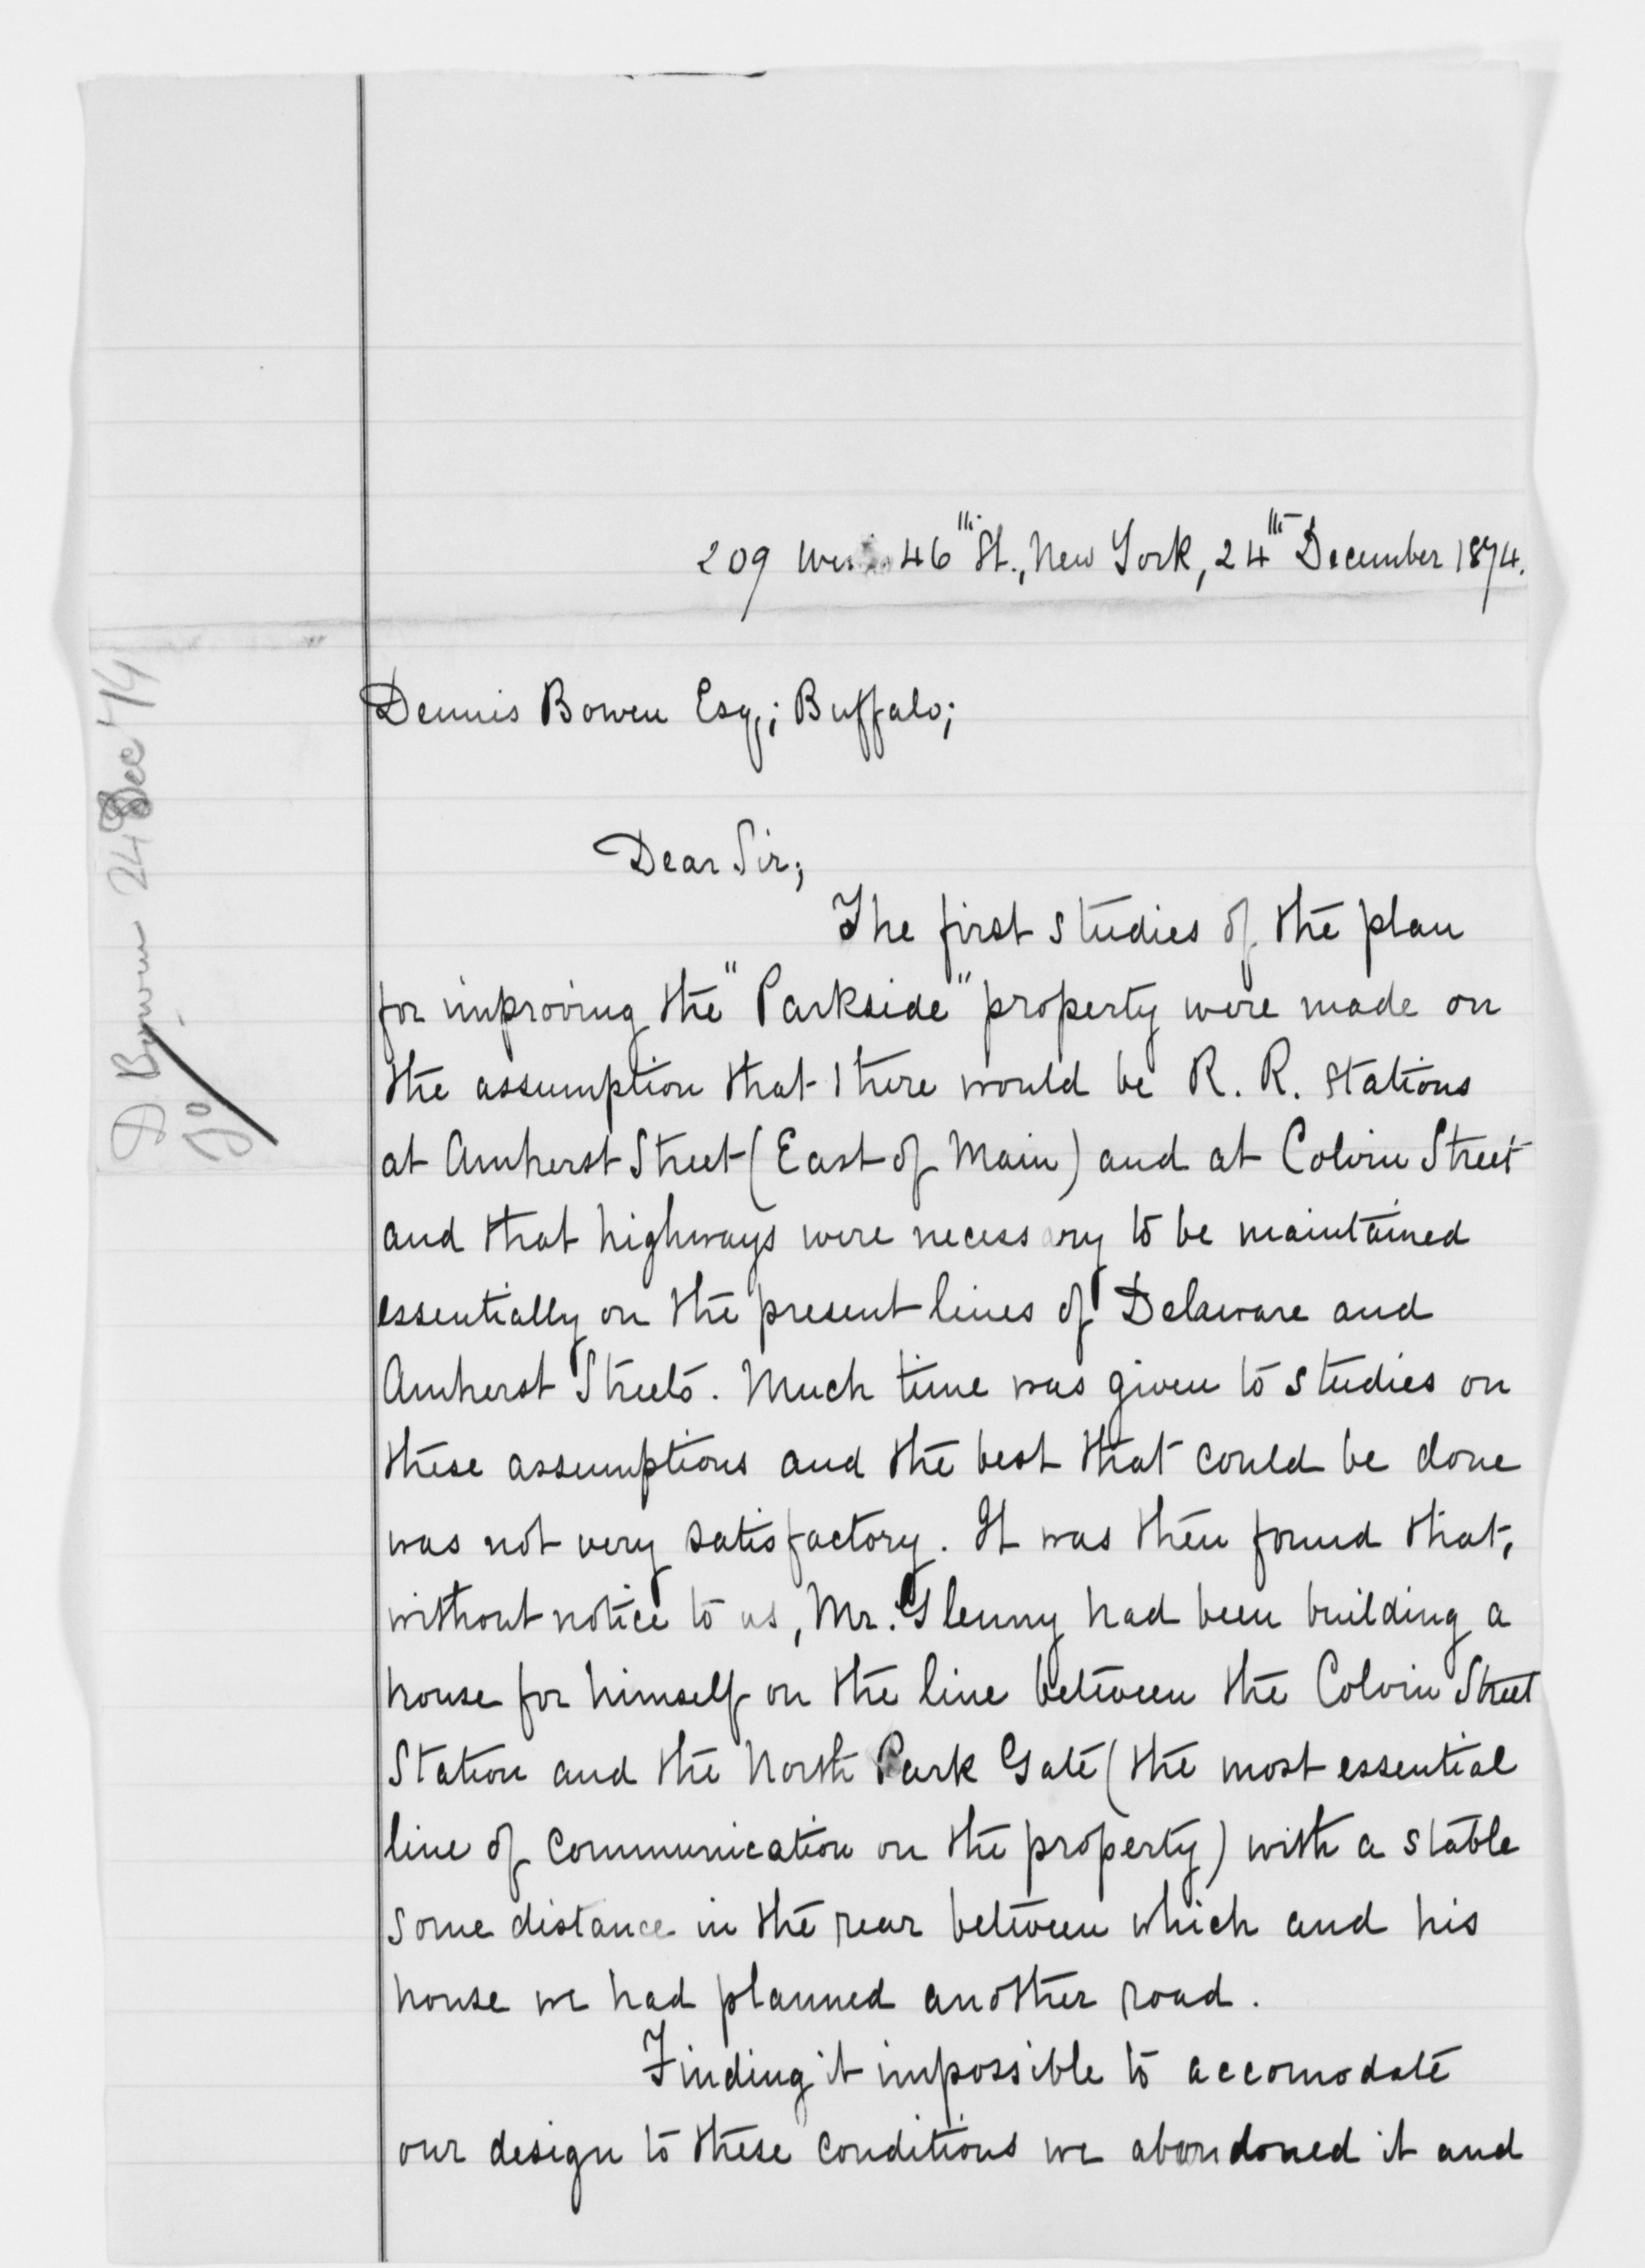 209 West 46th St., New York, 24th December 1874.
Dennis Bowen Esq; Buffalo;
Dear Sir;
The first studies of the plan
for improving the "Parkside" property were made on
the assumption that there would be R. R. stations
at Amherst Street (East of Main) and at Colvin Street
and that highways were necessary to be maintained
essentially on the present lines of Delaware and
Amherst Streets. Much time was given to studies on
these assumptions and the best that could be done
was not very satisfactory. It was then found that,
without notice to us, Mr. Glenny had been building a
house for himself on the line between the Colvin Street
Station and the North Park Gate (the most essential
line of communication on the property) with a stable
some distance in the rear between which and his
house we had planned another road.
Finding it impossible to accomodate
our design to these conditions we abandoned it and
D. Bowen 24 Dec 74